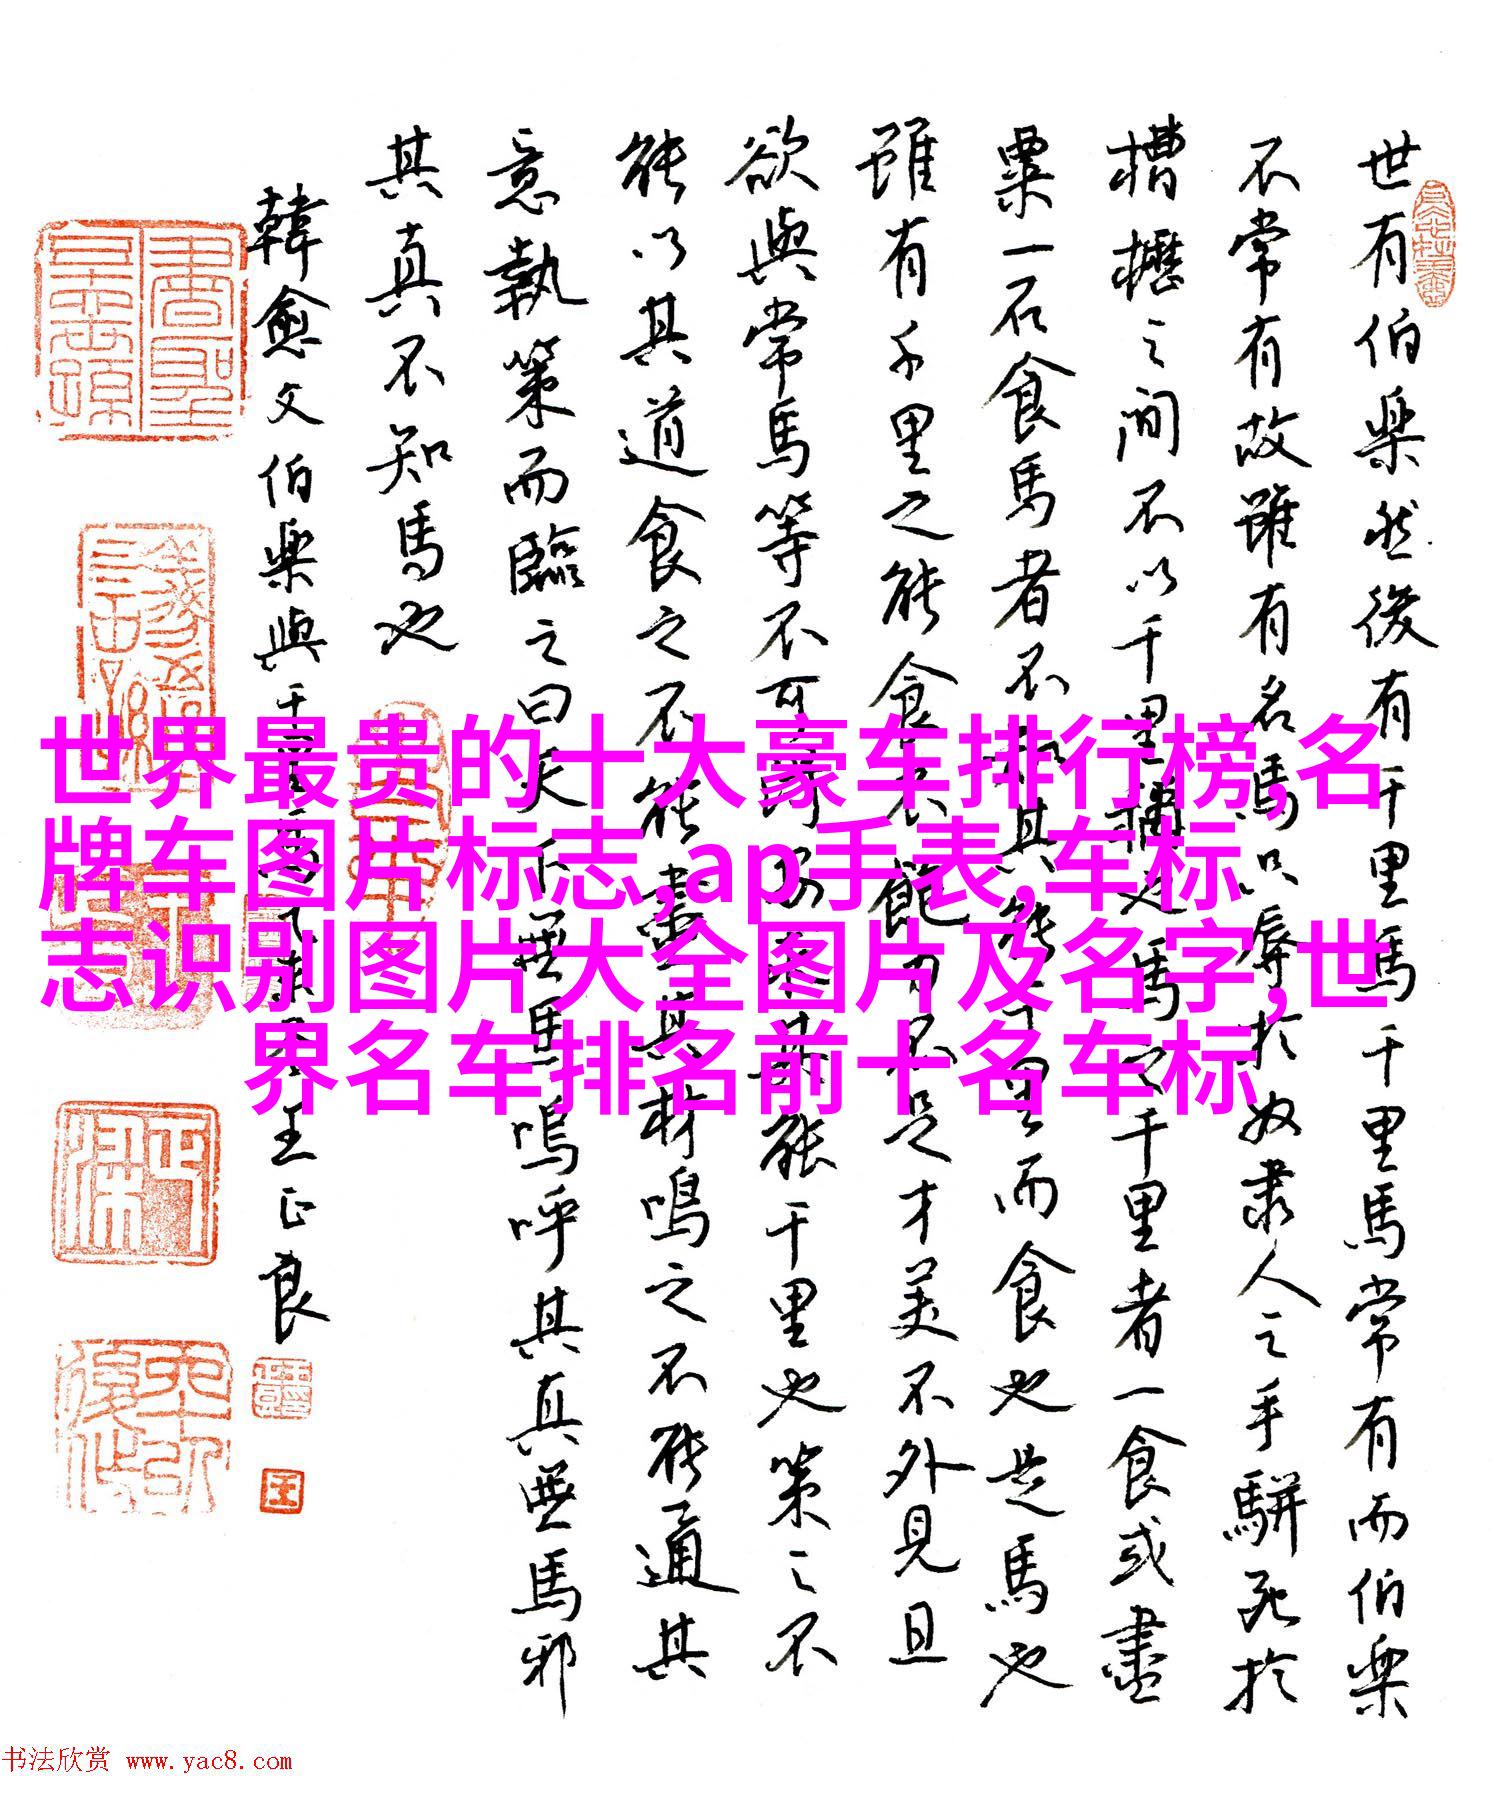 世有伯樂然後有千里馬千里馬常有而伯樂
不常有故雖有名馬只辱於奴隶人之手駢死於
槽櫪之間不以千里稱也馬之千里者一食或盡
粟一石食馬者不知其能千里而食也是馬也
雖有千里之能食不飽力不足才美不外見且
欲與常馬等不可得安求其能千里也策之不
能以其道食之不能盡其材鳴之不能通其
意執策而臨之曰天下無馬嗚呼其真無馬邪
其真不知馬也
韓愈文伯樂與千里馬王正良
世界最贵的十大豪车排行榜,名
牌车图片标志,ap手表,车标
志识别图片大全图片及名字,世
界名车排名前十名车标
书法欣赏 www.yac8.com